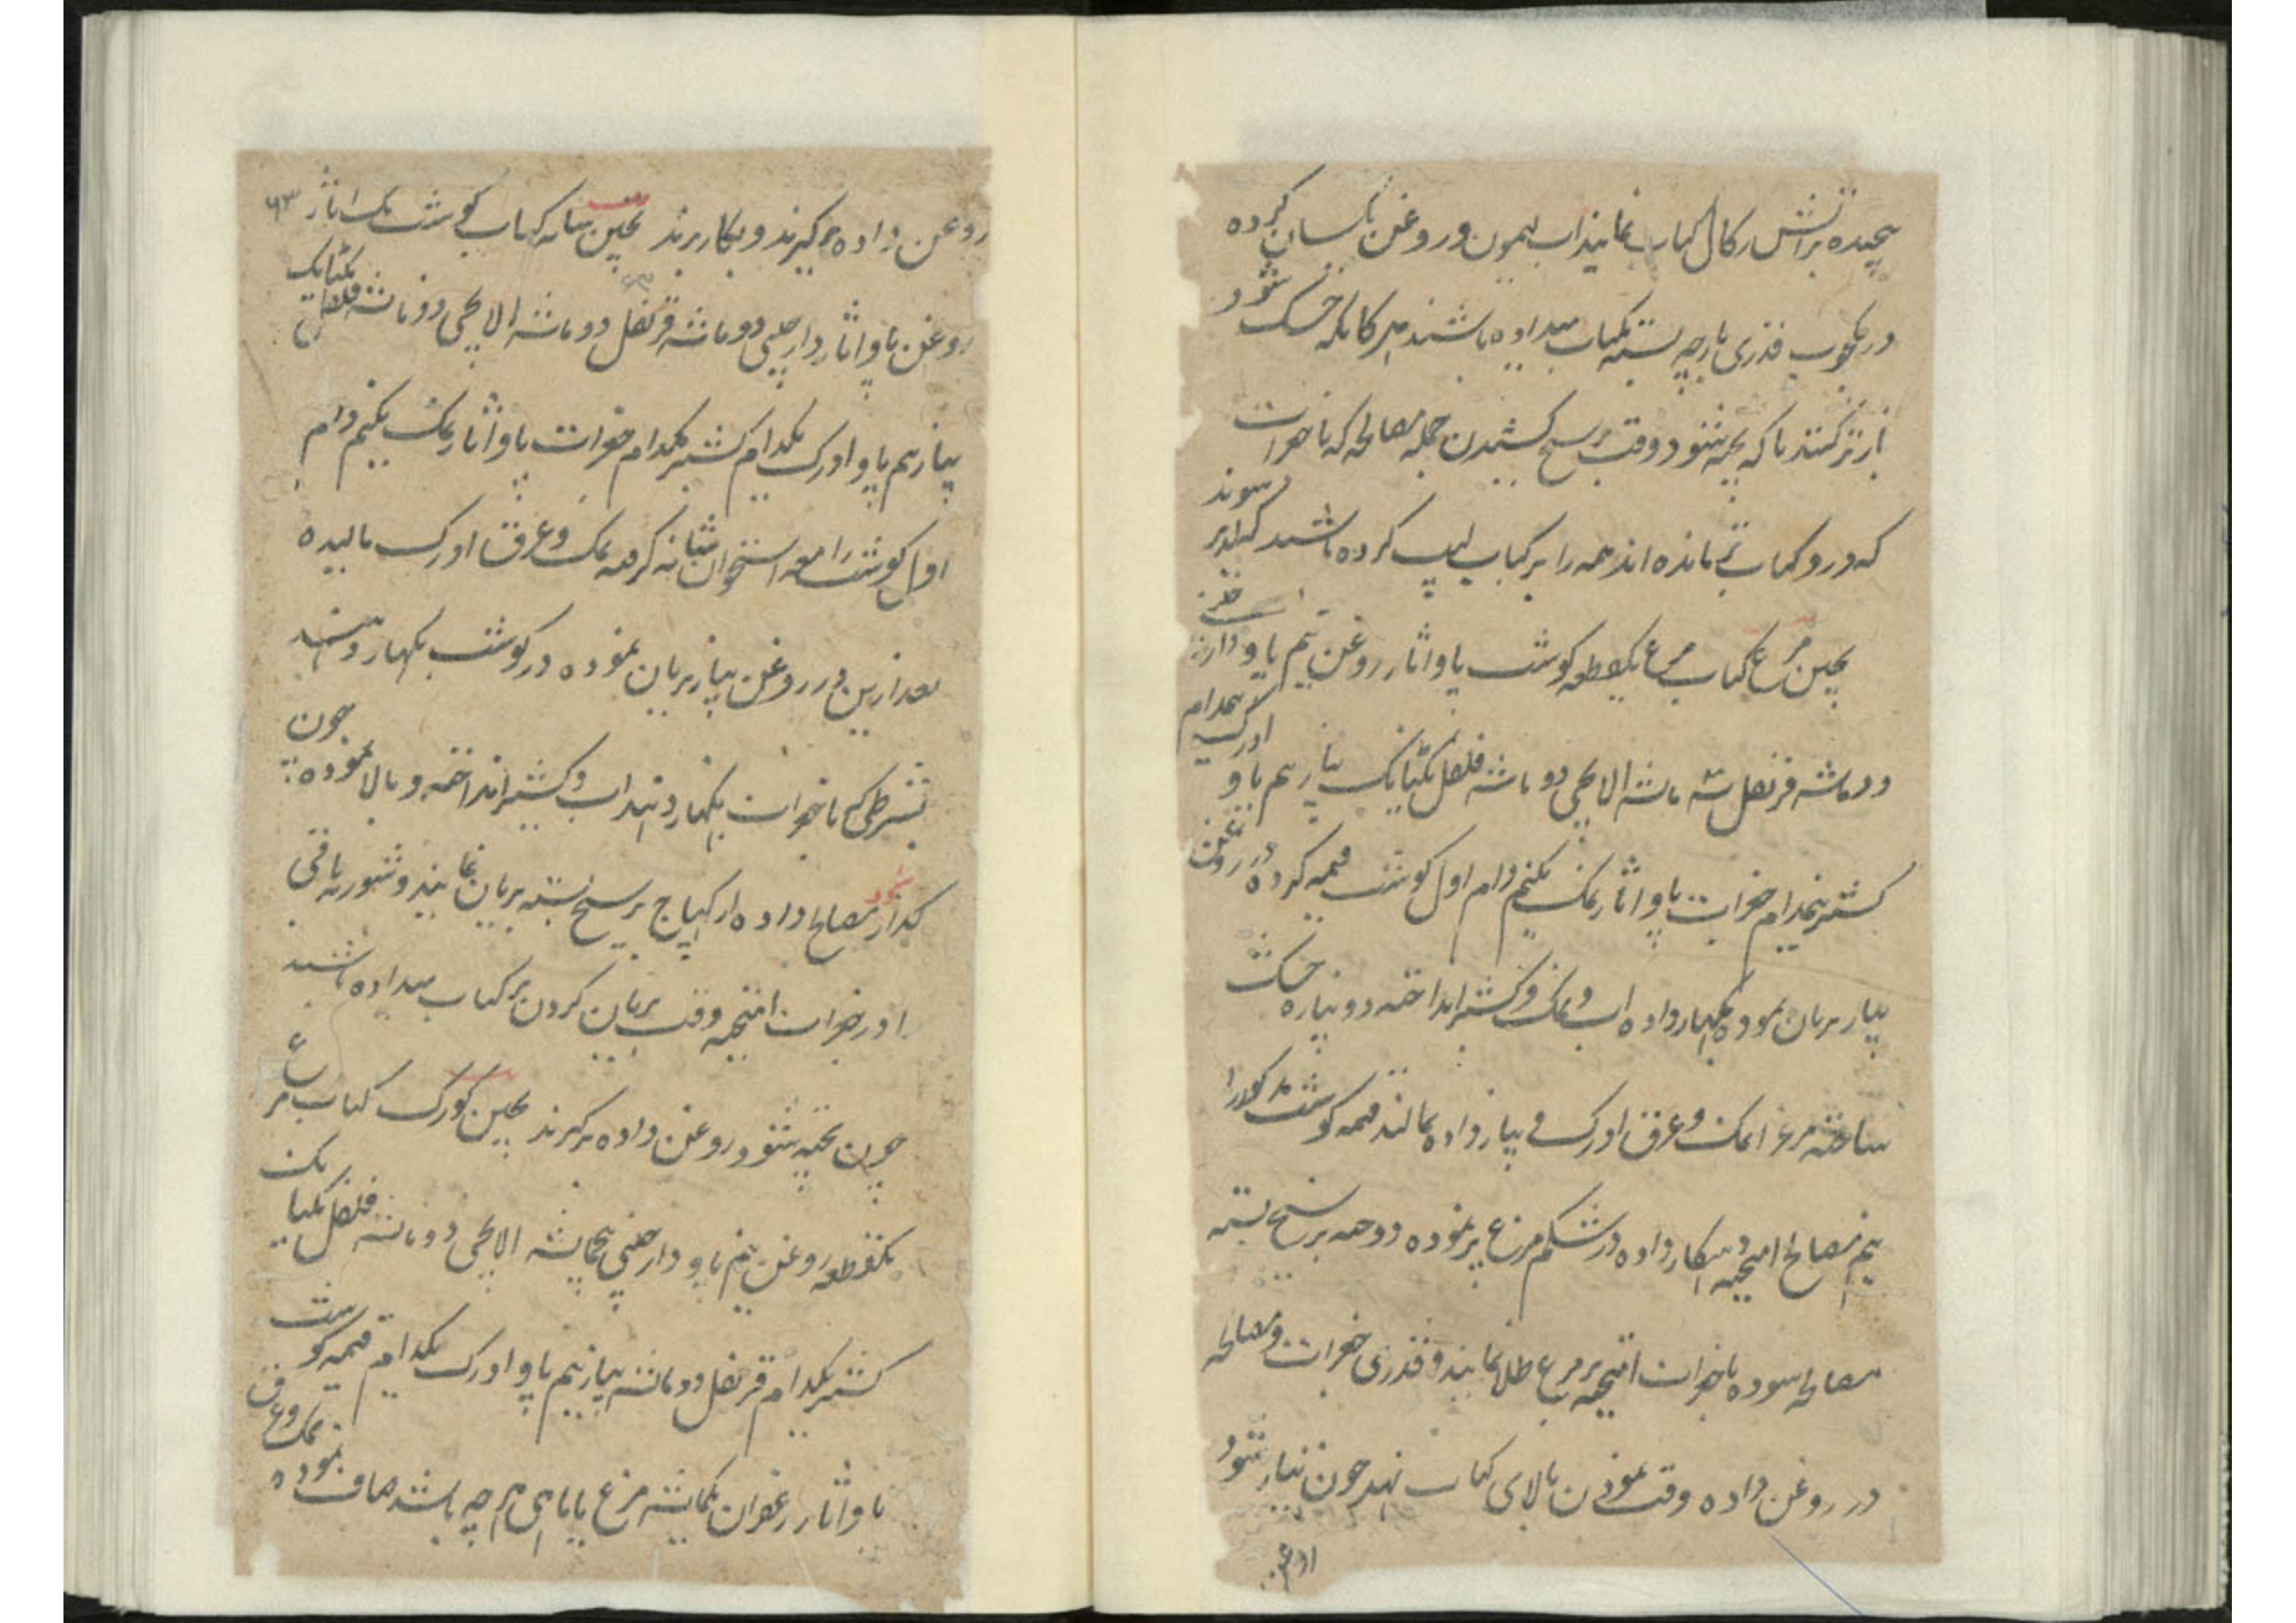 پیچیده بر آتش زکال کباب نمایند آب لیمون و روغن یکسان کرده
در یکچوب قدری پارچه بسته بکباب میداده باشند هر گاه که خشک شود
باز تر کنند تا که پخته شود وقت بر سیخ کشیدن جمله مصالحه که با جغرات
که در و کباب مانده اند همه را بر کباب لیپ کرده باشند
پختن مرغ کباب مرغ یکقطعه گوشت پاو آثار روغن نیم پاو دارچینی
دو ماشه قرنفل سه ماشه الاچی دو ماشه فلفل یکتانک پیاز نیم پاو ادرک پنجدام
کشنیز پنجدام جغرات پاو آثار نمک یکنیم دام اول گوشت قیمه کرده در روغن
پیاز بریان نموده بگهار داده آب و نمک و کشنیز انداخته دو پیازه خشک
ساخته مرغ را نمک و عرق ادرک و پیاز داده بمالند قیمه گوشت مذکور را
نیم مصالح آمیخته و بگهار داده در شکم مرغ پر نموده دوخته بر سیخ بسته
مصالحه سوده با جغرات آمیخته بر مرغ طلا نمایند و قدری جغرات و مصالحه
در روغن داده وقت نمودن بالای کباب نهند چون تیار شود
روغن داده برگیرند و بکار برند پختن شانه کباب گوشت یک آثار
روغن پاو آثار دارچینی دو ماشه قرنفل دو ماشه الاچی دو ماشه فلفل یکتانک
پیاز نیم پاو ادرک یکدام کشنیز یکدام جغرات پاو آثار نمک یکنیم دام
اول گوشت را معه استخوان شانه کرفته نمک و عرق ادرک مالیده
بعد ازین در روغن پیاز بریان نموده در گوشت بگهار دهند
بشرطیکه با جغرات بگهار دهند آب و کشنیز انداخته و بالا نموده چون
گداز شود مصالح داده از کهیاج بر سیخ بسته بریان نمایند و شوربه باقی
را در جغرات آمیخته وقت بریان کردن بر کباب میداده باشند
چون پخته شود روغن داده برگیرند پختن کورک کباب مرغ
یکقطعه روغن نیم پاو دارچینی پنجماشه الاچی دو ماشه فلفل یکتانک
کشنیز یکدام قرنفل دو ماشه پیاز نیم پاو ادرک یکدام قیمه گوشت
پاو آثار زعفران یکماشه مرغ یا ماهی هر چه باشد صاف نموده نمک و عرق